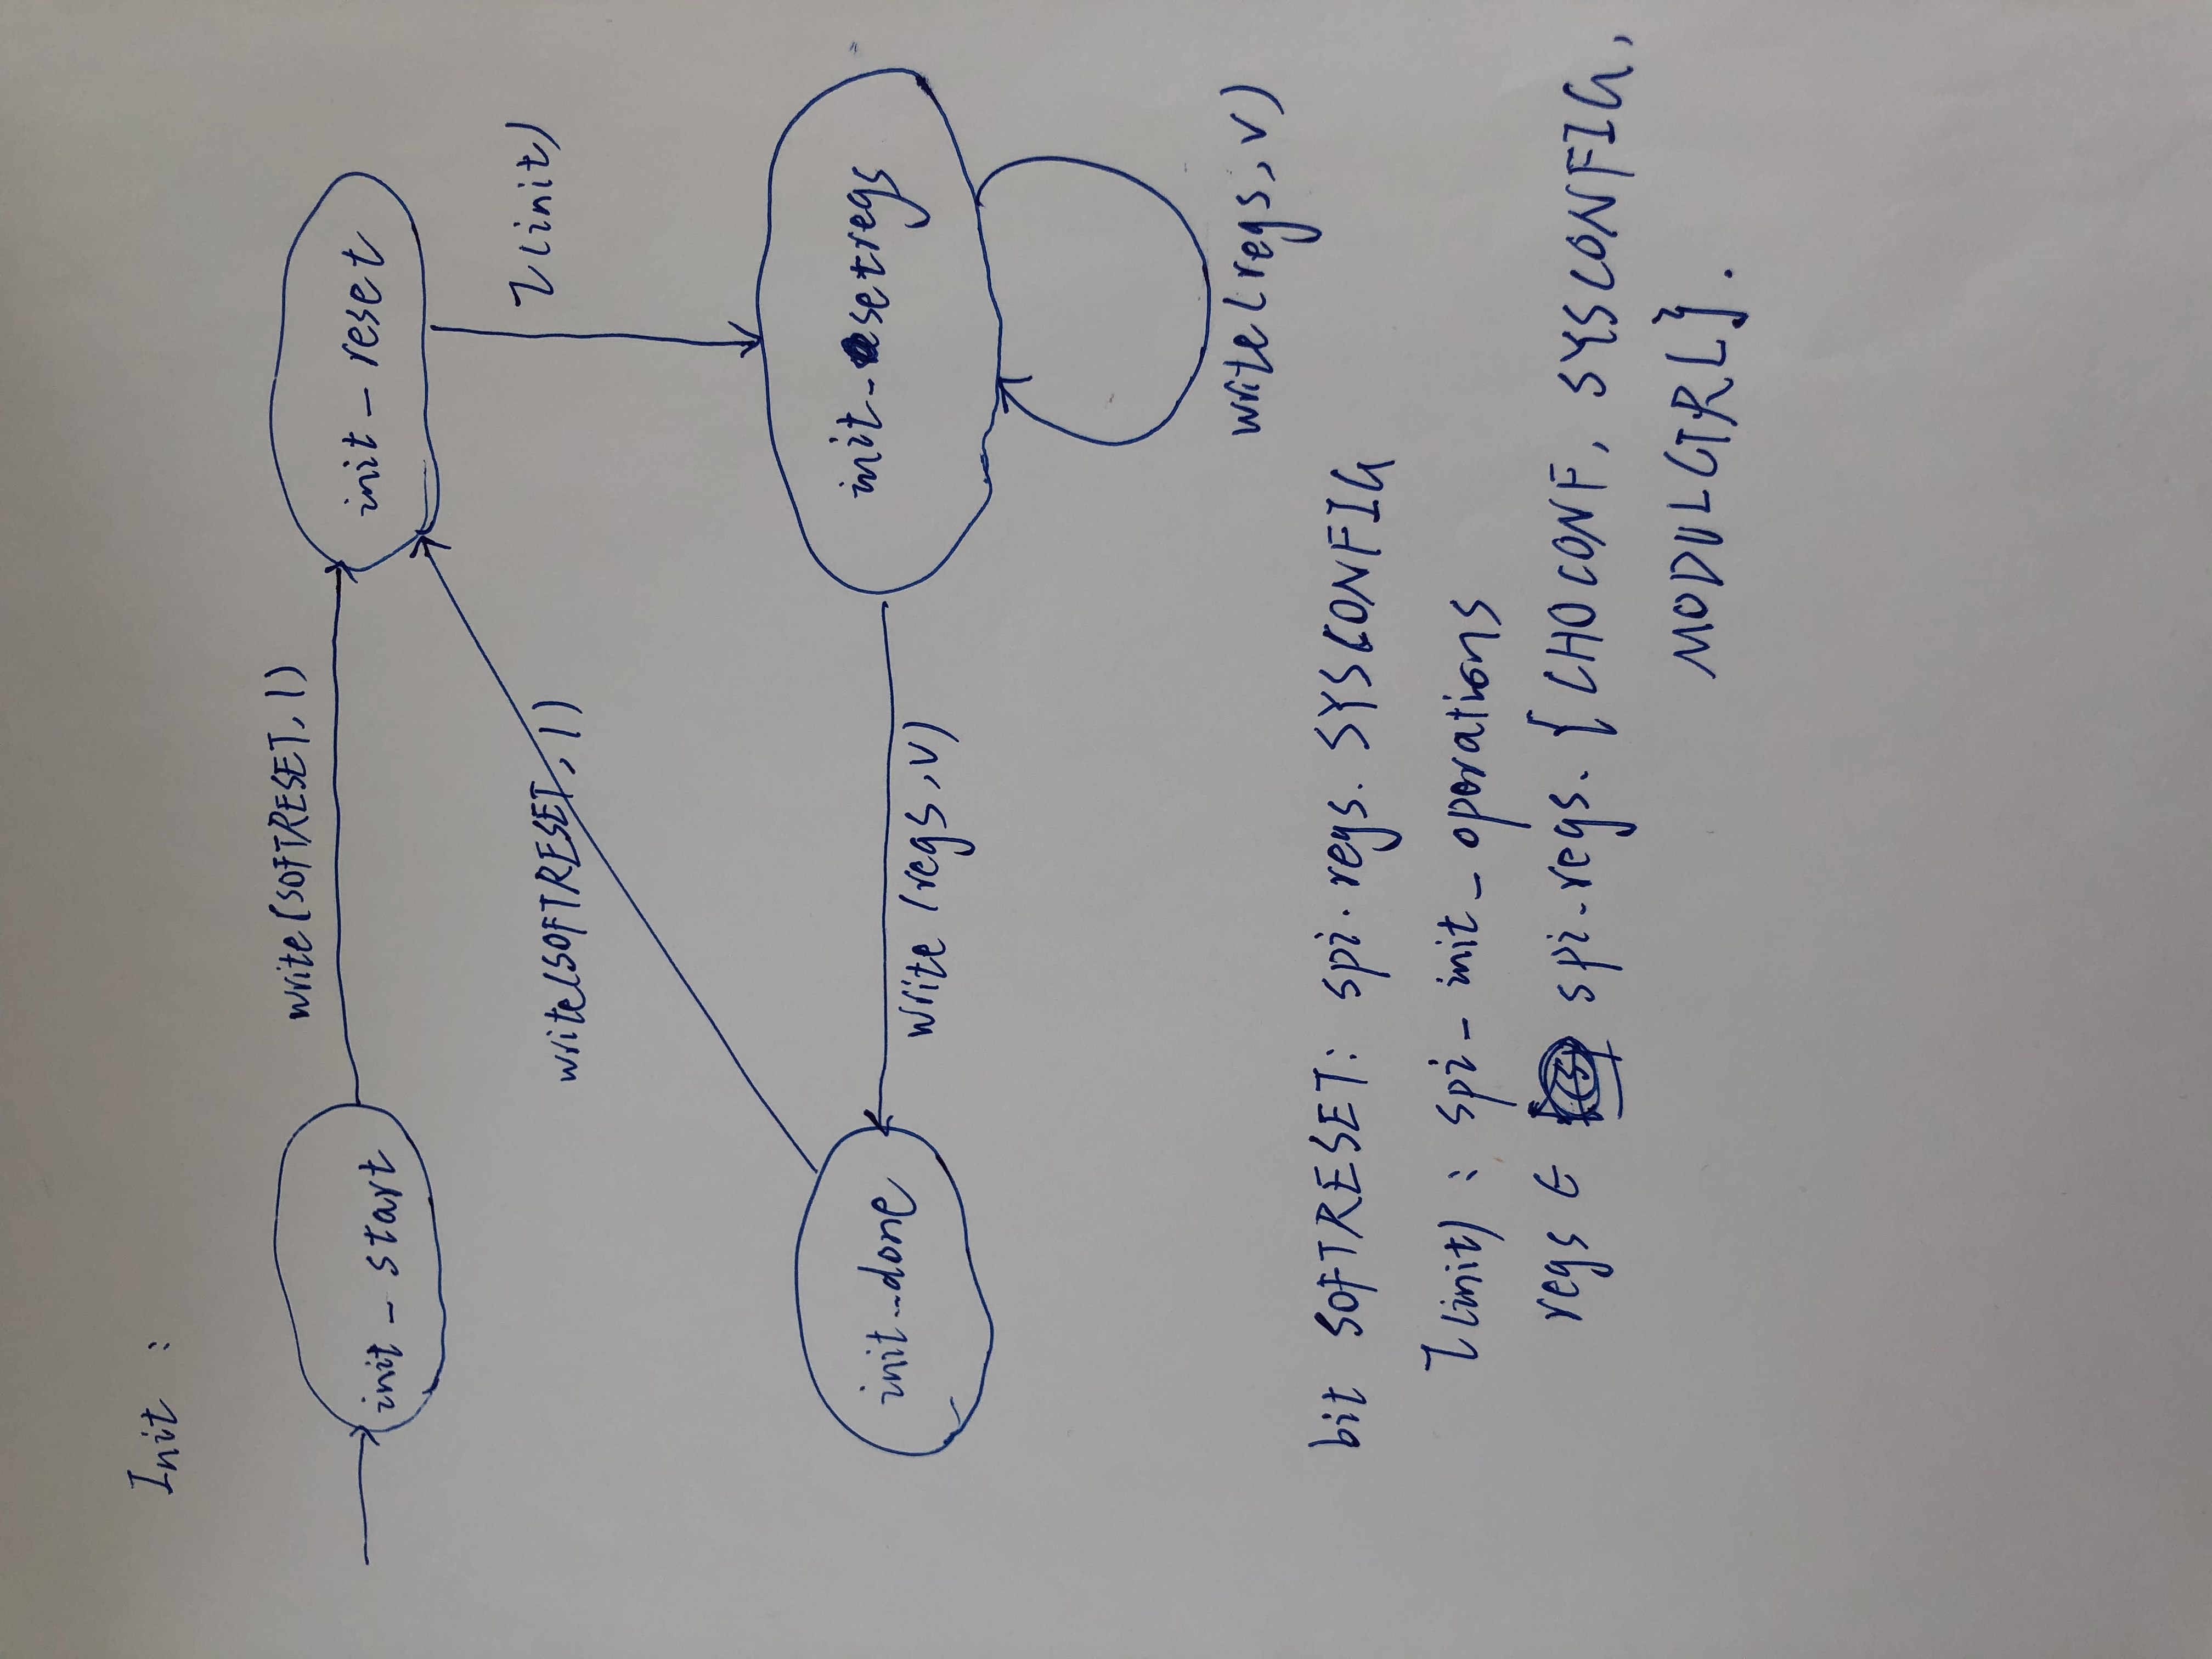 Init :
write(SOFTRESET, 1)
init_start
init_reset
τ(init)
write(SOFTRESET, 1)
init_setregs
init_done
write (regs, v)
write(regs, v)
bit SOFTRESET: spi.regs. SYSCONFIG
τ(init) : spi_init_operations
regs ∈ spi.regs. {CH0CONF, SYSCONFIG,
MODULCTRL}.